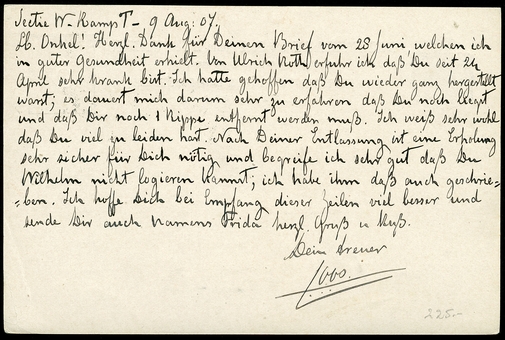 Sectie W- Kamp I - 9 Aug: 07,
Lb. Onkel! Herzl. Dank für Deinen Brief vom 28 Juni, welchen ich
in guter Gesundheit erhielt. Von Ulrich Muth erfuhr ich daß Du seit 24
April sehr krank bist. Ich hatte gehoffen daß Du wieder ganz hergestellt
warst; es dauert mich darum sehr zu erfahren daß Du noch liegst
und daß Dir noch 1 Rippe entfernt werden muß. Ich weiß sehr wohl
daß Du viel zu leiden hat. Nach Deiner Entlassung ist eine Erholung
sehr sicher für Dich nötig und begreife ich sehr gut daß Du
Wilhelm nicht logieren kannst; ich habe ihm daß auch geschrie=
=ben. Ich hoffe Dich bei Empfang dieser Zeilen viel besser und
sende Dir auch namens Frida herzl. Gruß u Kuß.
Dein treuer
Loos.
225.-